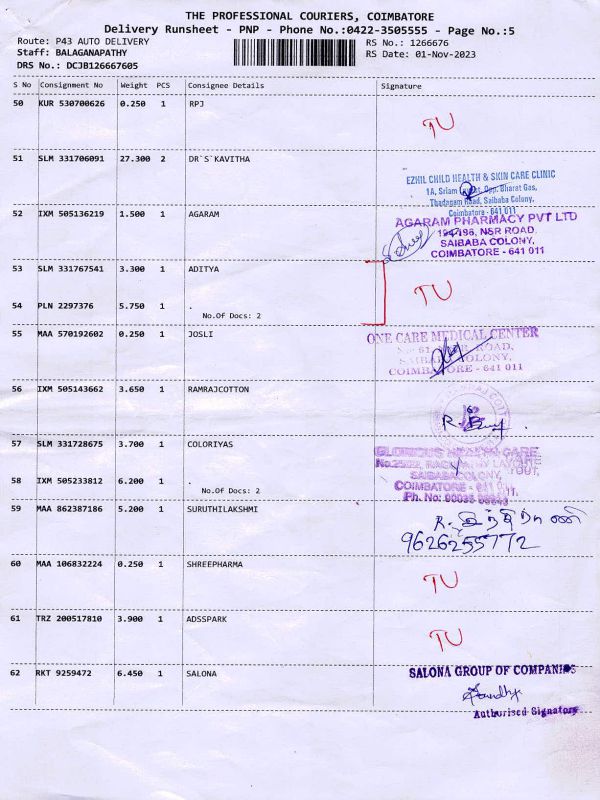 THE PROFESSIONAL COURIERS, COIMBATORE
Delivery Runsheet - PNP - Phone No.:0422-3505555 - Page No.:5
Route: P43 AUTO DELIVERY RS No.: 1266676
Staff: BALAGANAPATHY RS Date: 01-Nov-2023
DRS No.: DCJB126667605
S No Consignment No Weight PCS Consignee Details Signature
50 KUR 530700626 0.250 1 RPJ
TU
51 SLM 331706091 27.300 2 DR`S`KAVITHA
EZHIL CHILD HEALTH & SKIN CARE CLINIC
1A, Sriam Layout, Opp. Bharat Gas,
Thadagam Road, Saibaba Colony,
Coimbatore - 641 011
52 IXM 505136219 1.500 1 AGARAM
AGARAM PHARMACY PVT LTD
194-196, NSR ROAD
SAIBABA COLONY,
COIMBATORE - 641 011
53 SLM 331767541 3.300 1 ADITYA
TU
54 PLN 2297376 5.750 1 .
No.Of Docs: 2
55 MAA 570192602 0.250 1 JOSLI
ONE CARE MEDICAL CENTER
ROAD,
COLONY,
COIMBATORE - 641 011
56 IXM 505143662 3.650 1 RAMRAJCOTTON
57 SLM 331728675 3.700 1 COLORIYAS
GLORIOUS HEALTH CARE
SAIBABACOLONY,
COIMBATORE - 641 011.
Ph. No:
58 IXM 505233812 6.200 1 .
No.Of Docs: 2
59 MAA 862387186 5.200 1 SURUTHILAKSHMI
R. இந்திராணி
9626255772
60 MAA 106832224 0.250 1 SHREEPHARMA
TU
61 TRZ 200517810 3.900 1 ADSSPARK
TU
62 RKT 9259472 6.450 1 SALONA
SALONA GROUP OF COMPANIES
Authorised Signatory